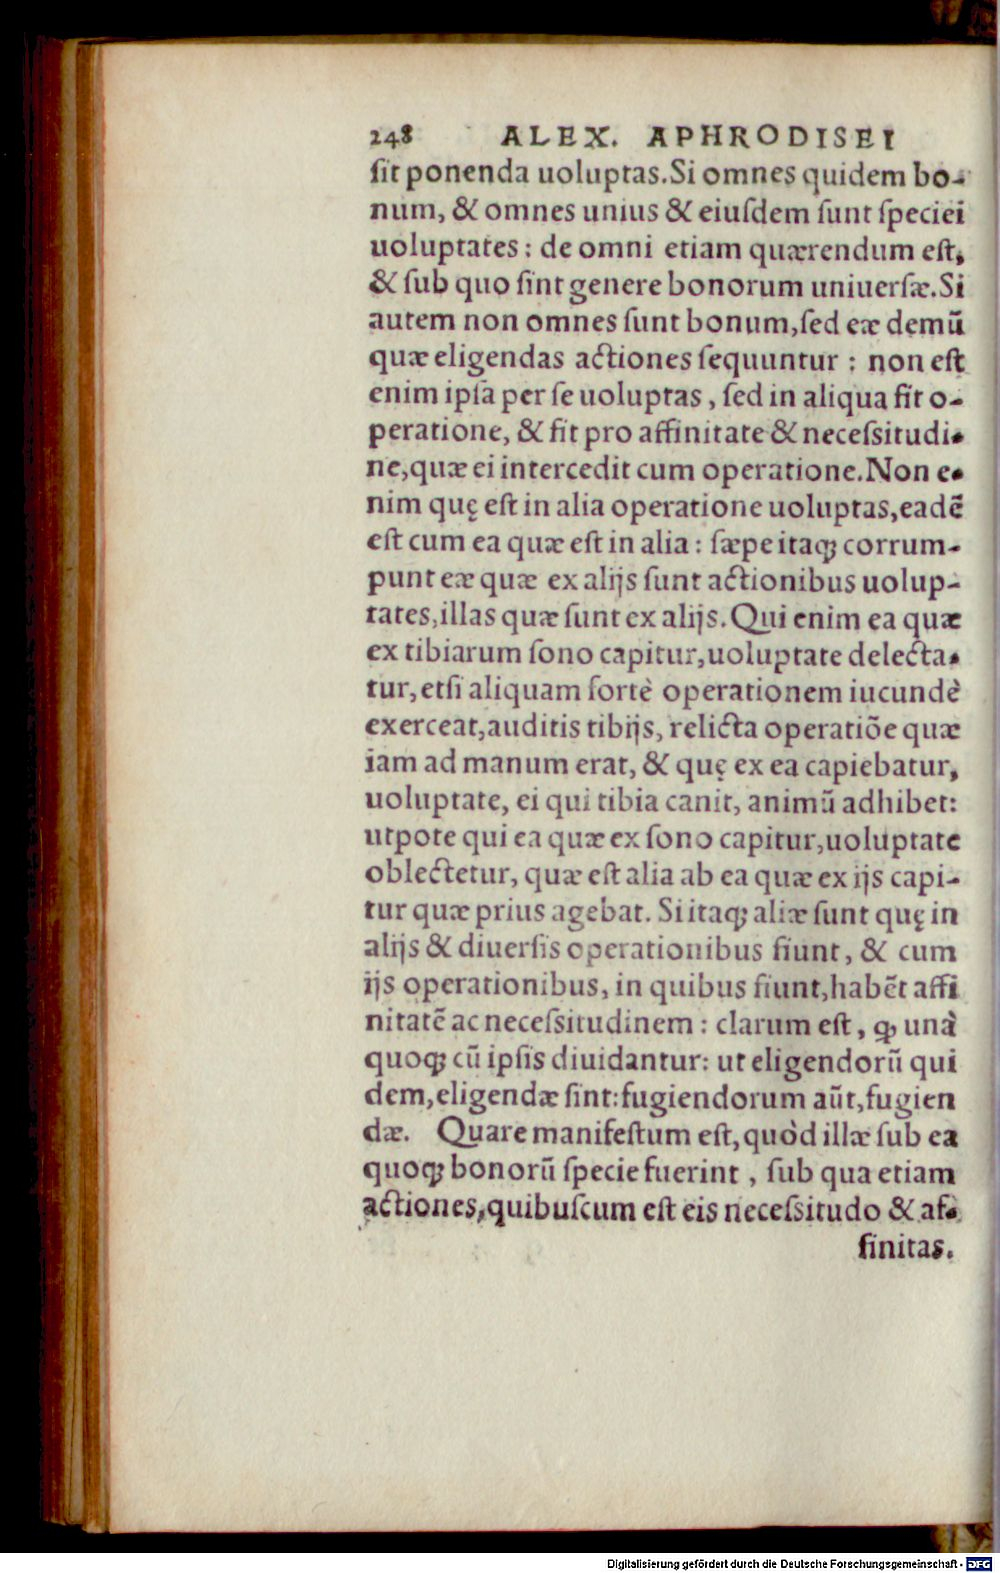 248 ALEX. APHRODISEI
ſit ponenda uoluptas. Si omnes quidem bo-
num, & omnes unius & eiuſdem ſunt ſpeciei
uoluptates: de omni etiam quærendum eſt,
& ſub quo ſint genere bonorum uniuerſæ. Si
autem non omnes ſunt bonum, ſed eæ demũ
quæ eligendas actiones ſequuntur: non eſt
enim ipſa per ſe uoluptas, ſed in aliqua fit o-
peratione, & fit pro affinitate & neceſsitudi-
ne, quæ ei intercedit cum operatione. Non e-
nim quę eſt in alia operatione uoluptas, eadẽ
eſt cum ea quæ eſt in alia: ſæpe itaq; corrum-
punt eæ quæ ex alijs ſunt actionibus uolup-
tates, illas quæ ſunt ex alijs. Qui enim ea quæ
ex tibiarum ſono capitur, uoluptate delecta-
tur, etſi aliquam fortè operationem iucundè
exerceat, auditis tibijs, relicta operatiõe quæ
iam ad manum erat, & quę ex ea capiebatur,
uoluptate, ei qui tibia canit, animũ adhibet:
utpote qui ea quæ ex ſono capitur, uoluptate
oblectetur, quæ eſt alia ab ea quæ ex ijs capi-
tur quæ prius agebat. Si itaq; aliæ ſunt quę in
alijs & diuerſis operationibus fiunt, & cum
ijs operationibus, in quibus fiunt, habẽt affi
nitatẽ ac neceſsitudinem: clarum eſt, ꝙ unà
quoq; cũ ipſis diuidantur: ut eligendorũ qui
dem, eligendæ ſint: fugiendorum aũt, fugien
dæ. Quare manifeſtum eſt, quòd illæ ſub ea
quoq; bonorũ ſpecie fuerint, ſub qua etiam
actiones, quibuſcum eſt eis neceſsitudo & af-
finitas.
Digitalisierung gefördert durch die Deutsche Forschungsgemeinschaft - DFG